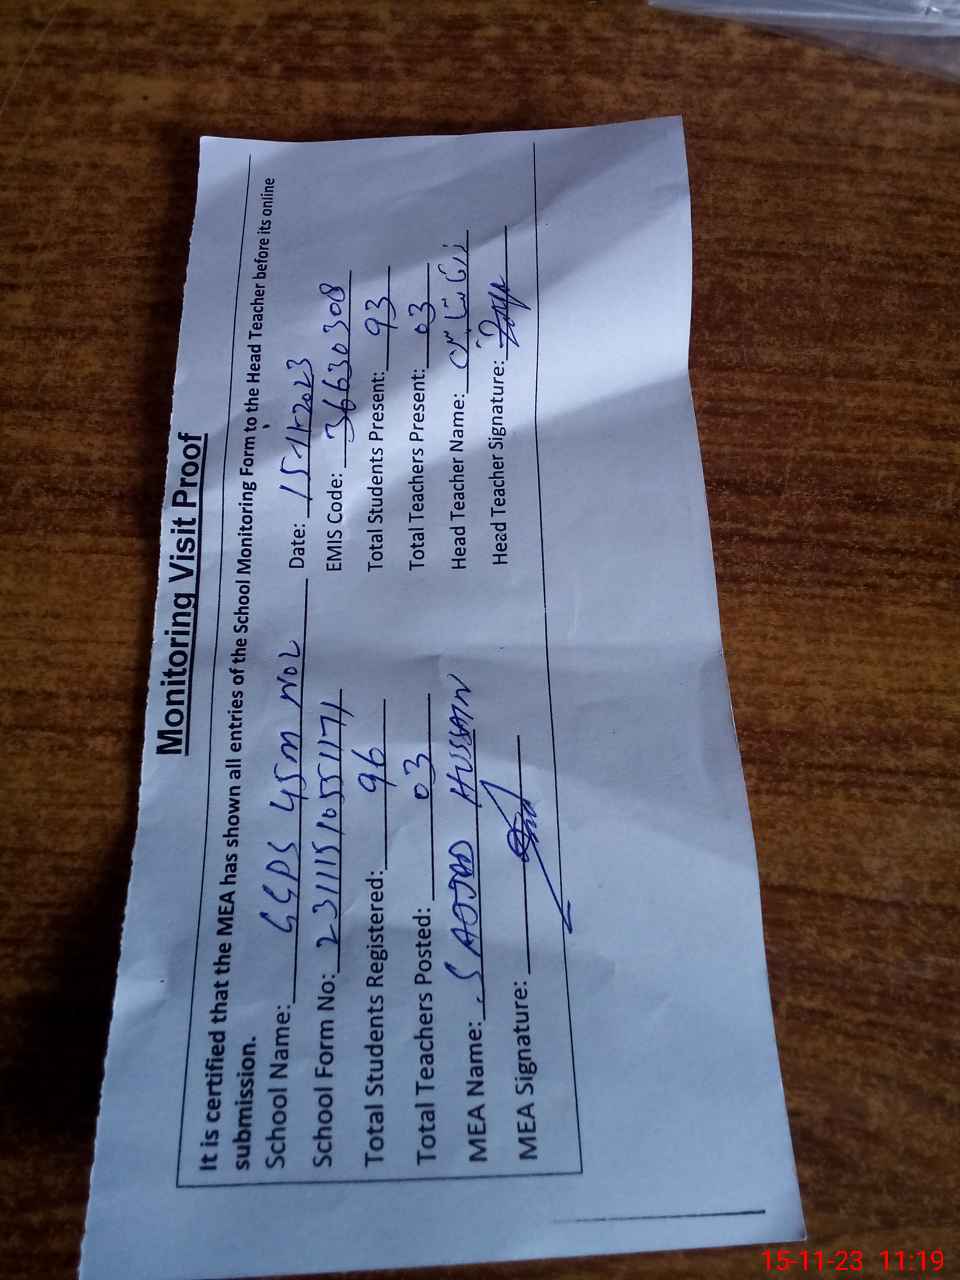 Monitoring Visit Proof
It is certified that the MEA has shown all entries of the School Monitoring Form to the Head Teacher before its online
submission.
School Name: GGPS 45M NO2 Date: 15-11-2023
School Form No: 23111510551171 EMIS Code: 36630308
Total Students Registered: 96 Total Students Present: 93
Total Teachers Posted: 03 Total Teachers Present: 03
MEA Name: SAJJAD HUSSAIN Head Teacher Name:
MEA Signature: Head Teacher Signature:
15-11-23 11:19